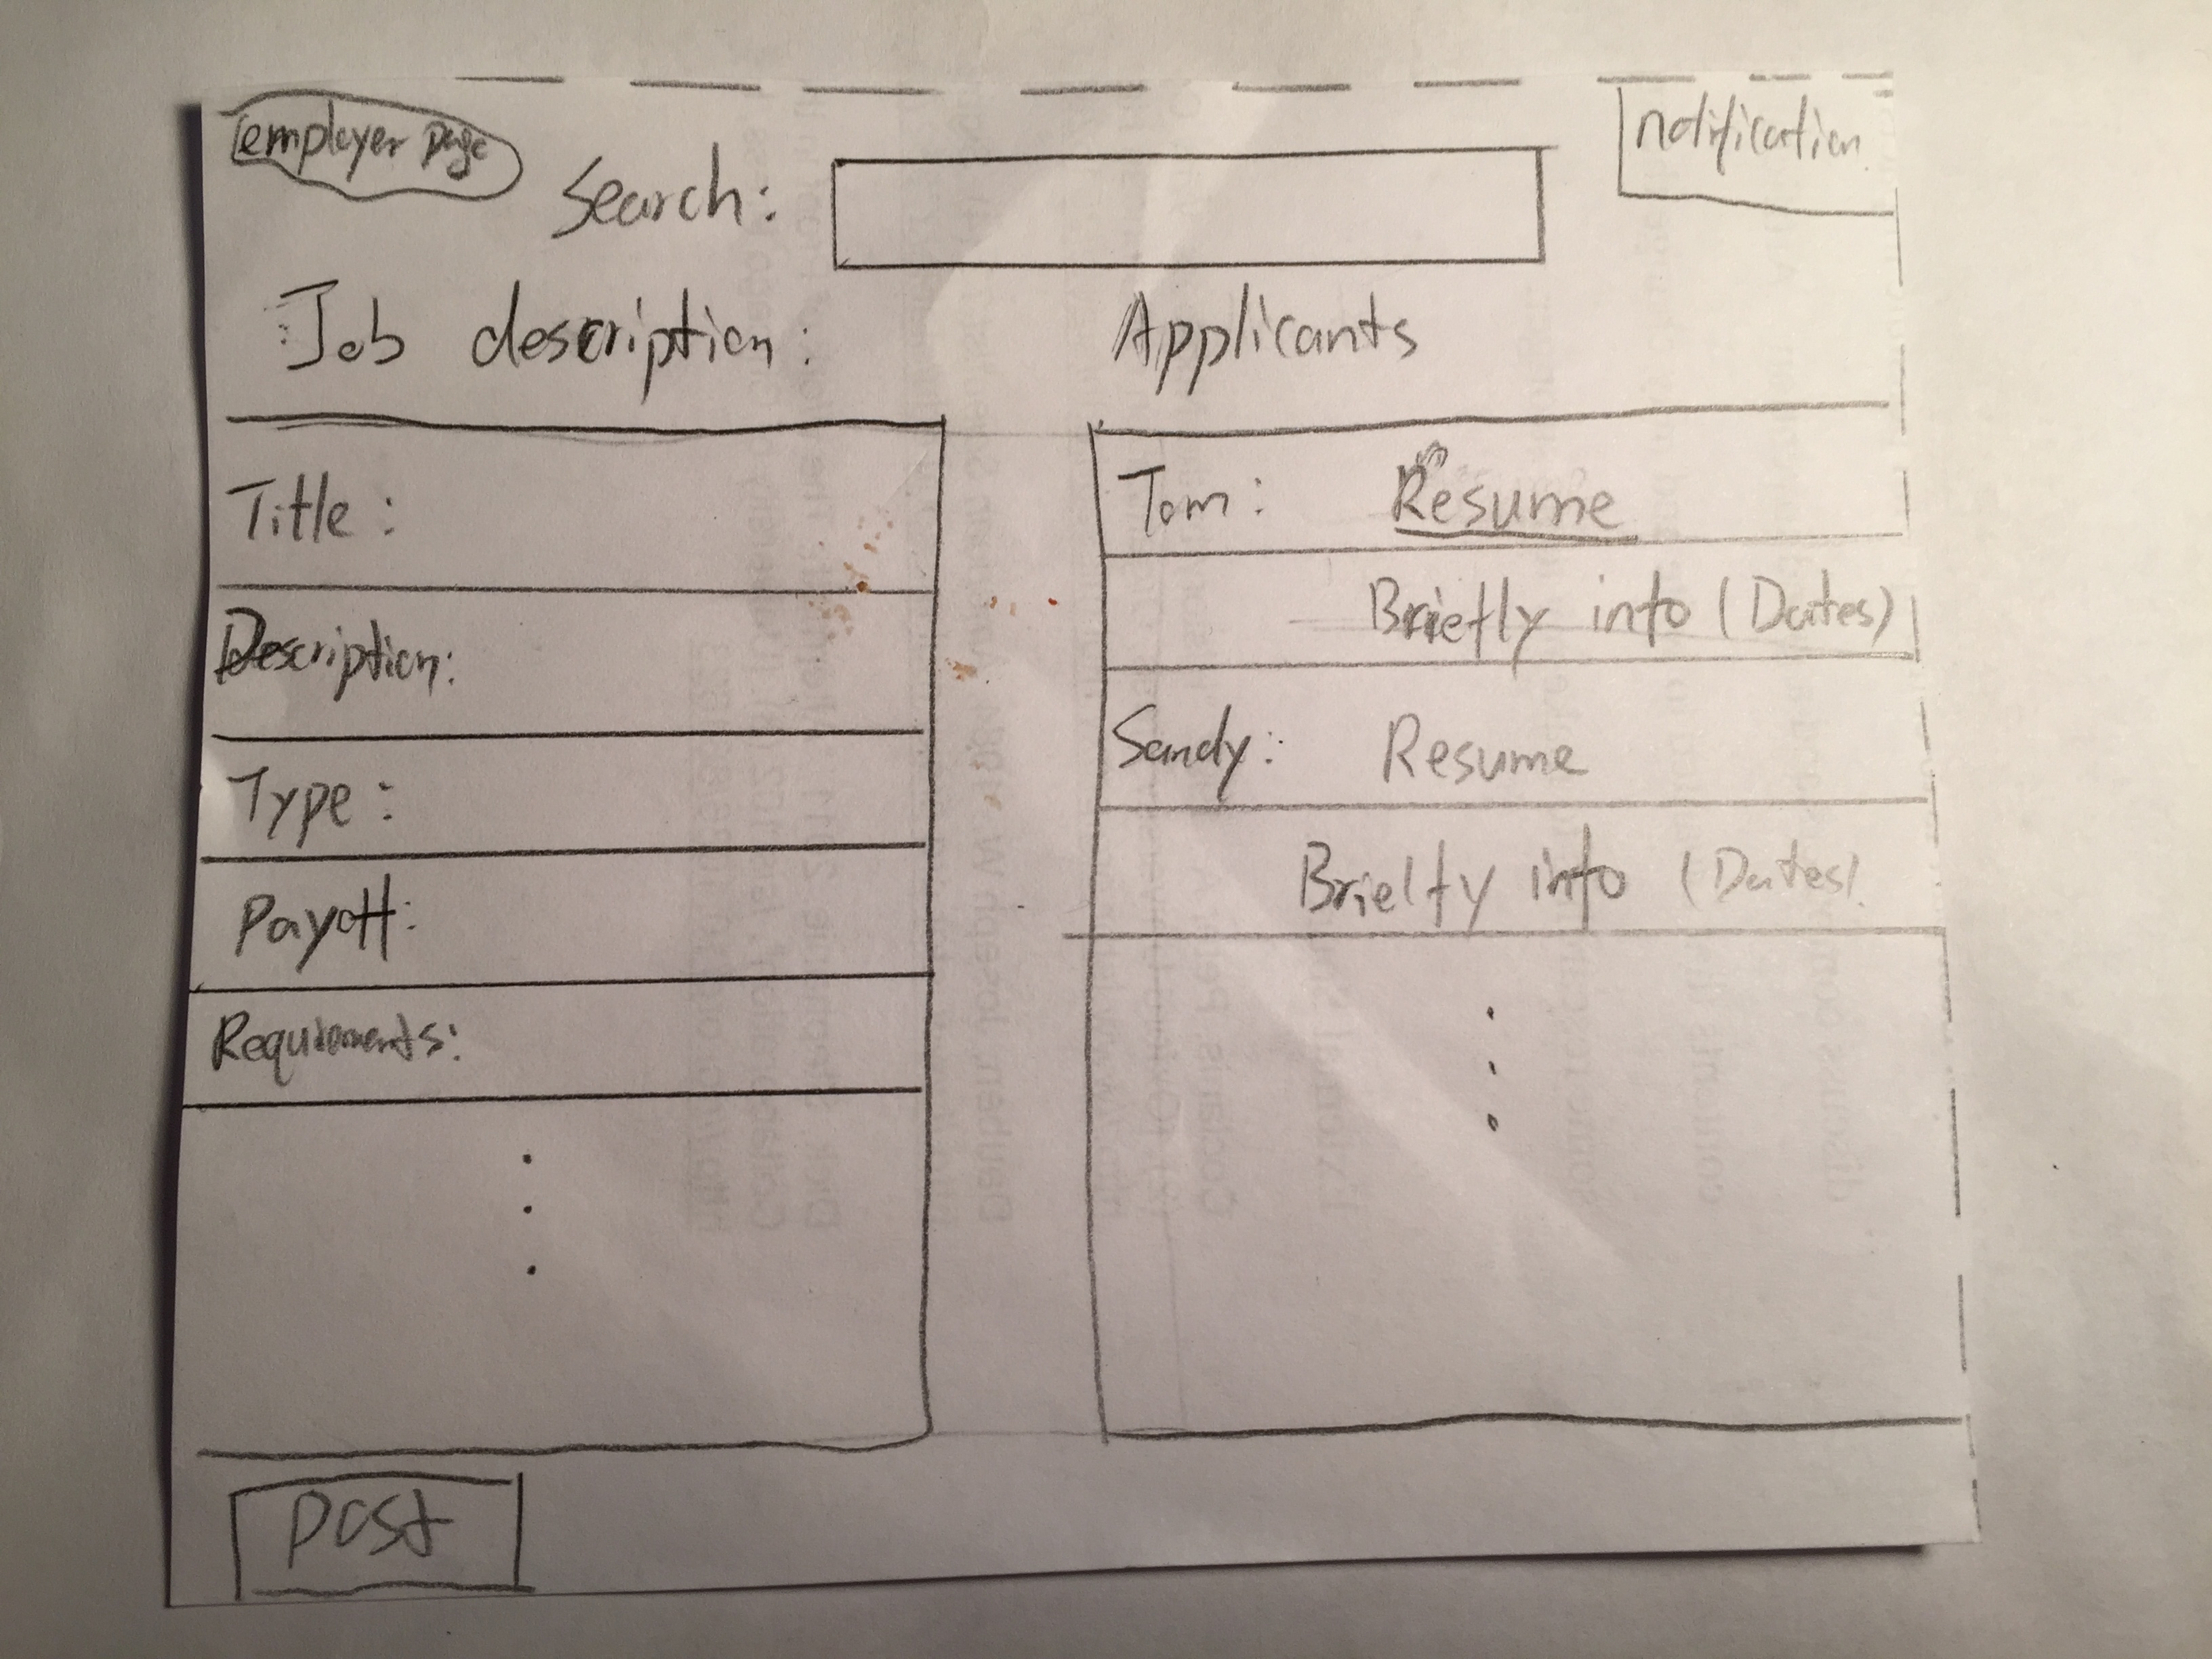 employer page
notification
Search:
Job description:
Applicants
Title:
Description:
Type:
Payoff:
Requirements:
Post
Tom: Resume
Briefly info (Dates)
Sandy: Resume
Brielfy info (Dates)